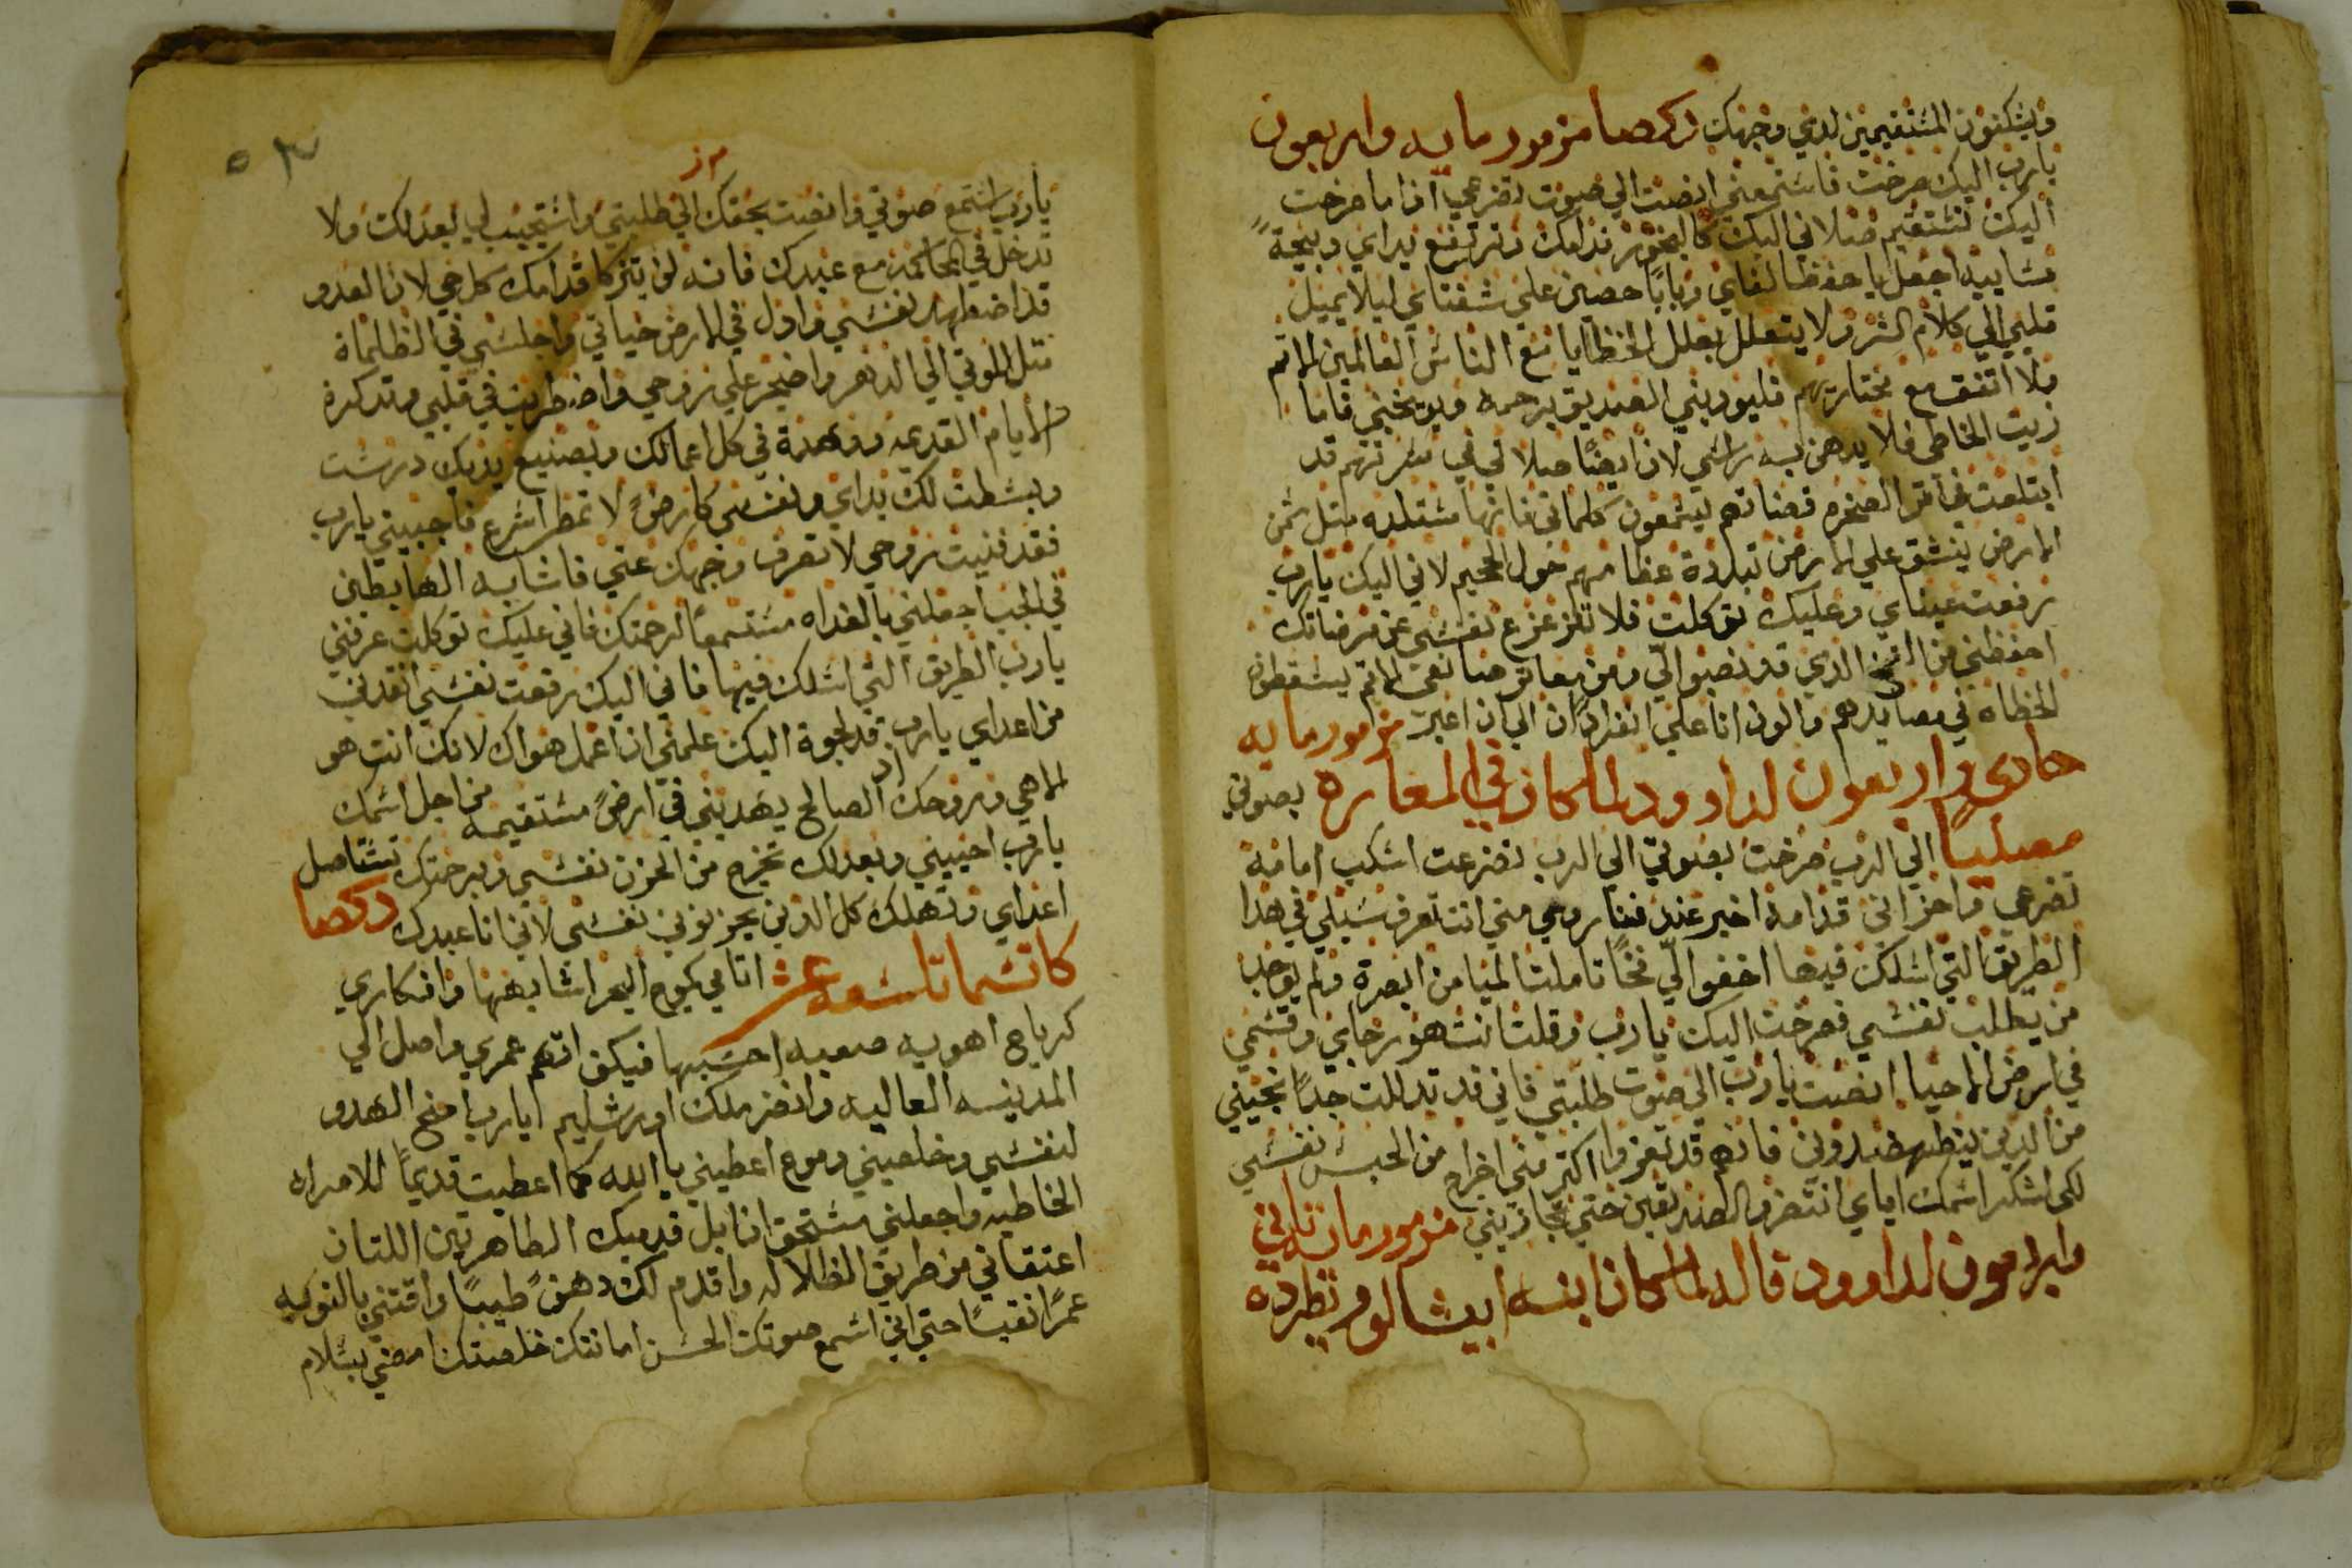 ويسكنون المستقيمين لدي وجهك ذكصا مزمور مايه واربعون
يارب اليك صرخت فاستمعني انصت الي صوت تضرعي اذا ما صرخت
اليك لتستقيم صلاتي اليك كالبخور قدامك وترتفع يداي دبيحةً
مسايية اجعل يا حفظا لفاي وبابًا حصين علي شفتاي ليلا يميل
قلبي الي كلام الشر ولا يتعلل بعلل الخطايا مع الناس العالمين الاتم
ولا اتفق مع مختاريهم فليودبني الصديق برحمه ويوبخني فاما
زيت الخاطي فلا يدهن به راسي لان ايضًا صلاتي في مسرتهم قد
ابتلعت عند الصخره قضاتهم ليسمعون كلماتي فانها مستلده متل سمن
الارض ينشق علي الارض تبددة عظامهم حول الجحيم لاني اليك يارب
رفعت عيناي وعليك توكلت فلا تنزع نفسي عن مرضاتك
احفظني من الفخ الدي قد نصبو الّي ومن معاتر صانعي الاتم يسقطون
الخطاه في مصايدهم واكون انا علي انفرادًا الي ان اعبر مزمور مايه
حادي واربعون لداوود لما كان في المغاره بصوتي
مصليًا الي الرب صرخت بصوتي الي الرب تضرعت اسكب امامه
تضرعي واحزاني قدامه اخبر عند فنا روحي مني انت تعرف سبلي في هدا
الطريق التي اسلك فيها اخفوا لّي فخًا تاملت الميامن ابصرة ولم يوجد
من يطلب نفسي فصرخت اليك يارب وقلت انت هو رجاي وقسمي
في ارض الاحيا انصت يارب الي صوت طلبتي فاني قد تدللت جدًا نجيني
من الدين يضطهدوني فانهم قد تعزوا اكتر مني اخراج من الحبس نفسي
لكي اشكر اسمك اياي انتظر الصديقين حتي تجازيني مزمور مايه تاني
واربعون لداوود قاله لما كان ابنه ابيشالوم يطرده
مز
يارب استمع صوتي وانصت بحقك الي طلبتي واستجيب لي بعدلك ولا
تدخل في المحاكمه مع عبدك فانه لن يتزكا قدامك كل حي لان العدو
قد اضطهد نفسي وادل في الارض حياتي واجلسني في الظلماة
متل الموتي الي الدهر واضجر علي روحي واضطرب في قلبي وتدكرة
الايام القديمه وهدة في كل اعمالك وبصنيع يديك درست
وبسطت لك يداي ونفسي كارضً لا تمطر اسرع فاجيبني يارب
فقد فنيت روحي لا تصرف وجهك عني فاشابه الهابطين
في الجب اجعلني بالغداه مستمعًا لرحمتك فاني عليك توكلت عرفني
يارب الطريق التي اسلك فيها فاني اليك رفعت نفسي انقدني
من اعداي يارب قد لجوة اليك علمني ان اعمل هواك لانك انت هو
الاهي وروحك الصالح يهديني في ارضً مستقيمه من اجل اسمك
يارب احييني وبعدلك تخرج من الحزن نفسي وبرحمتك تستاصل
اعداي وتهلك كل الدين يحزنون نفسي لاني انا عبدك ذكصا
كاتسما تاسعه عشر اتامي كموج البحر اشابهها وافكاري
كرياح اهويه صعبه احسبها فكيف اتمم عمري واصل الي
المدينه العاليه وانضر ملك اورشليم ايارب امنح الهدو
لنفسي وخلصيني دموع اعطيني يا الله كما اعطيت قديمًا للامراه
الخاطيه واجعلني مستحق ان ابل قدميك الطاهرتين اللتان
اعتقاني من طريق الظلاله واقدم لك دهنً طيبًا واقتني بالتوبه
عمرًا نقيًا حتي اني اسمع صوتك الحسن امانتك خلصتك امضي بسلام